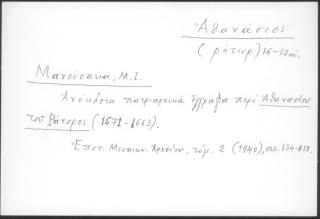 Ἀθανάσιος
(ῥήτωρ) 16-17 αἰ.
Μανούσακα, Μ.Ι.
Ἀνέκδοτα πατριαρχικά ἔγγραφα περί Ἀθανασίου
τοῦ Ρήτορος (1571-1663).
Ἐπετ. Μεσαιων. Ἀρχείου, τόμ. 2 (1940), σσ. 134-151.